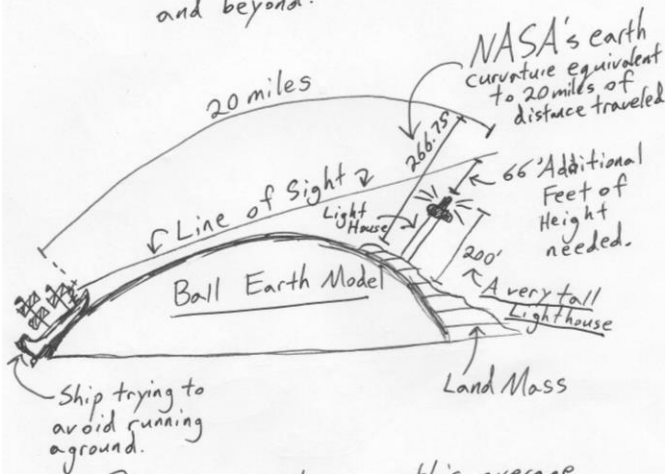 and beyond.
NASA's earth
curvature equivalent
to 20 miles of
distance traveled
20 miles
266.75'
66' Additional
Feet of
Height
needed.
Line of Sight
Light
House
200'
Ball Earth Model
A very tall
Lighthouse
Land Mass
Ship trying to
avoid running
aground.
this average